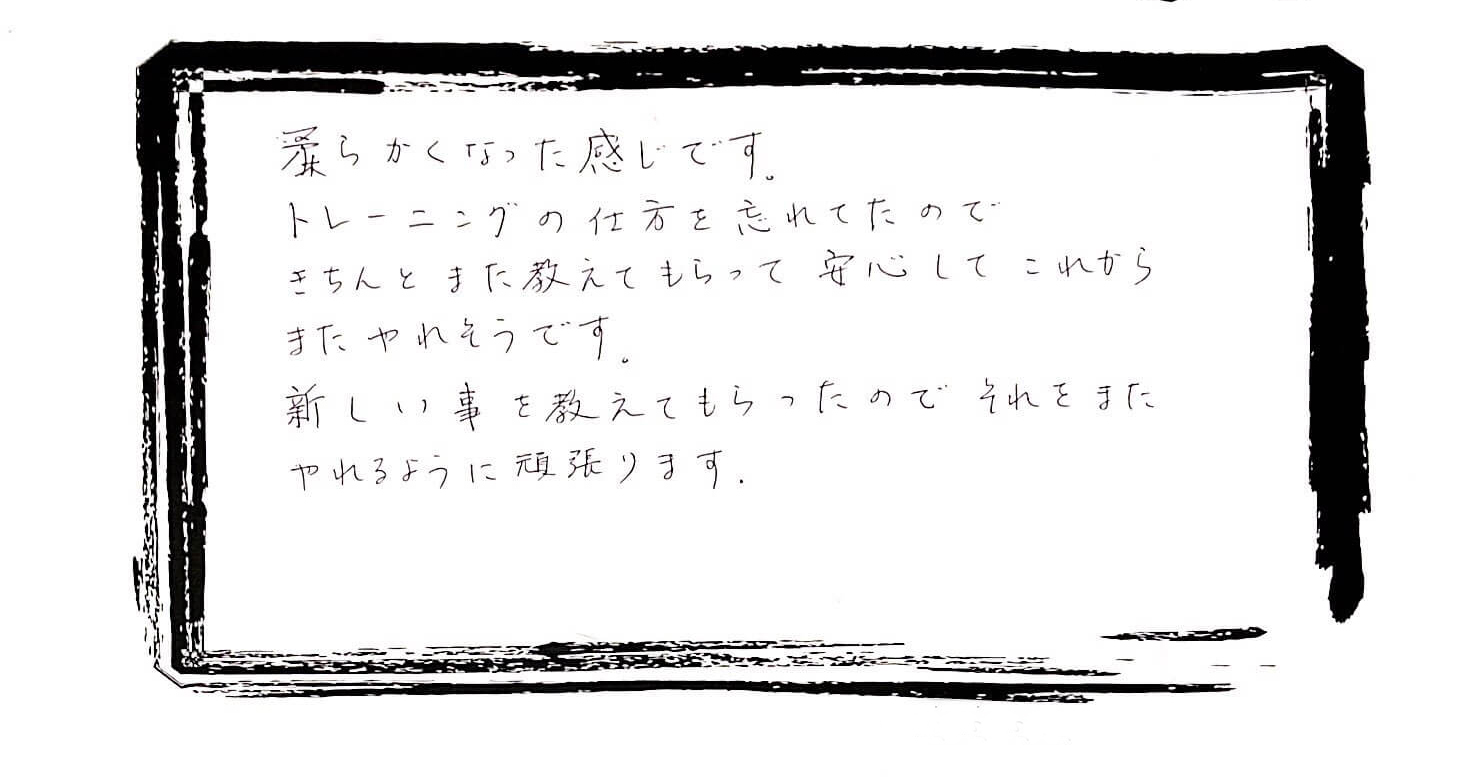 柔らかくなった感じです。
トレーニングの仕方を忘れてたので
きちんとまた教えてもらって安心してこれから
またやれそうです。
新しい事を教えてもらったのでそれをまた
やれるように頑張ります.